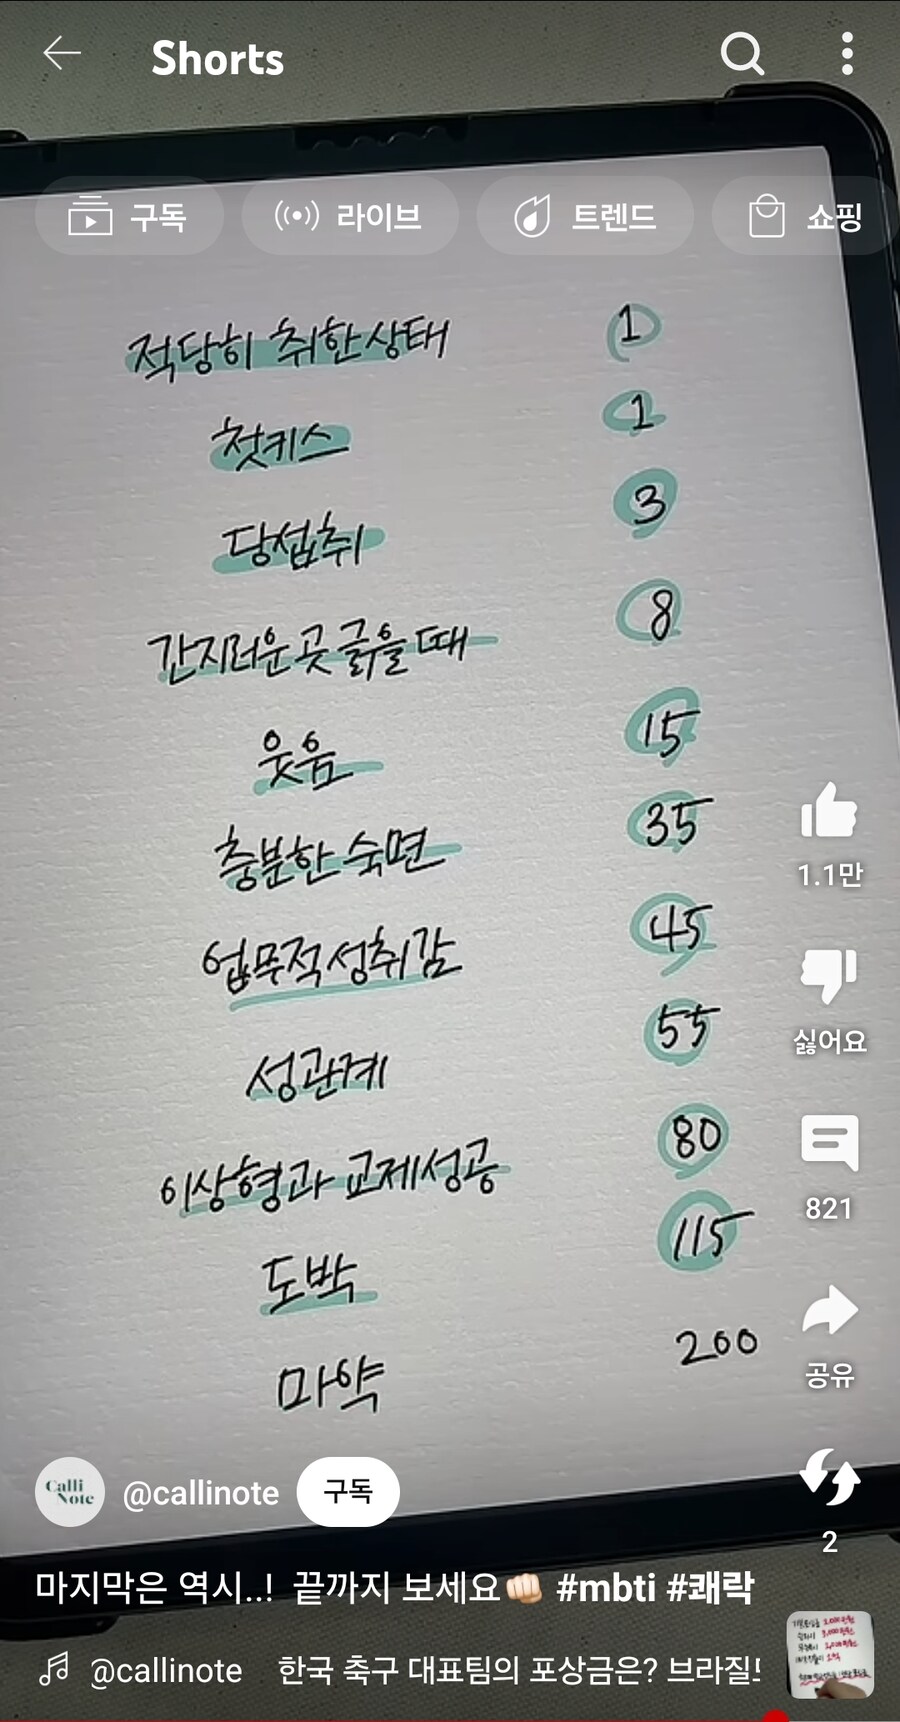 Shorts
구독
라이브
트렌드
쇼핑
적당히 취한상태 1
첫키스 1
당섭취 3
간지러운 곳 긁을 때 8
웃음 15
충분한 숙면 35
업무적 성취감 45
성관계 55
이상형과 교제성공 80
도박 115
마약 200
1.1만
싫어요
821
공유
2
Calli
Note
@callinote
구독
마지막은 역시..! 끝까지 보세요👊🏻 #mbti #쾌락
@callinote 한국 축구 대표팀의 포상금은? 브라질